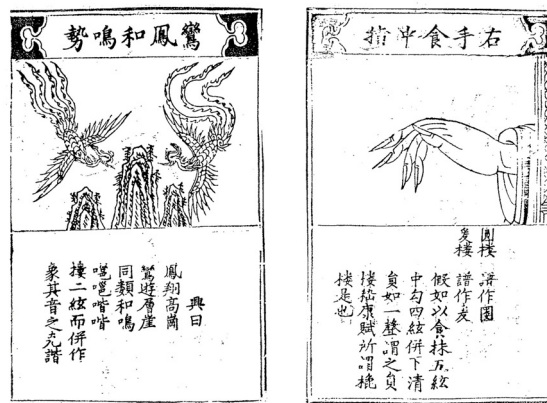 右手食中指
圓摟 譜作
摟 譜作
假如以食抹五絃
中勾四絃併下清
貟如一聲謂之貟
摟嵇康賦所謂
摟是也
鸞鳳和鳴勢
興曰
鳳翔高崗
鸞遊層崖
同類和鳴
嗈嗈喈喈
摟二絃而併作
象其音之克諧